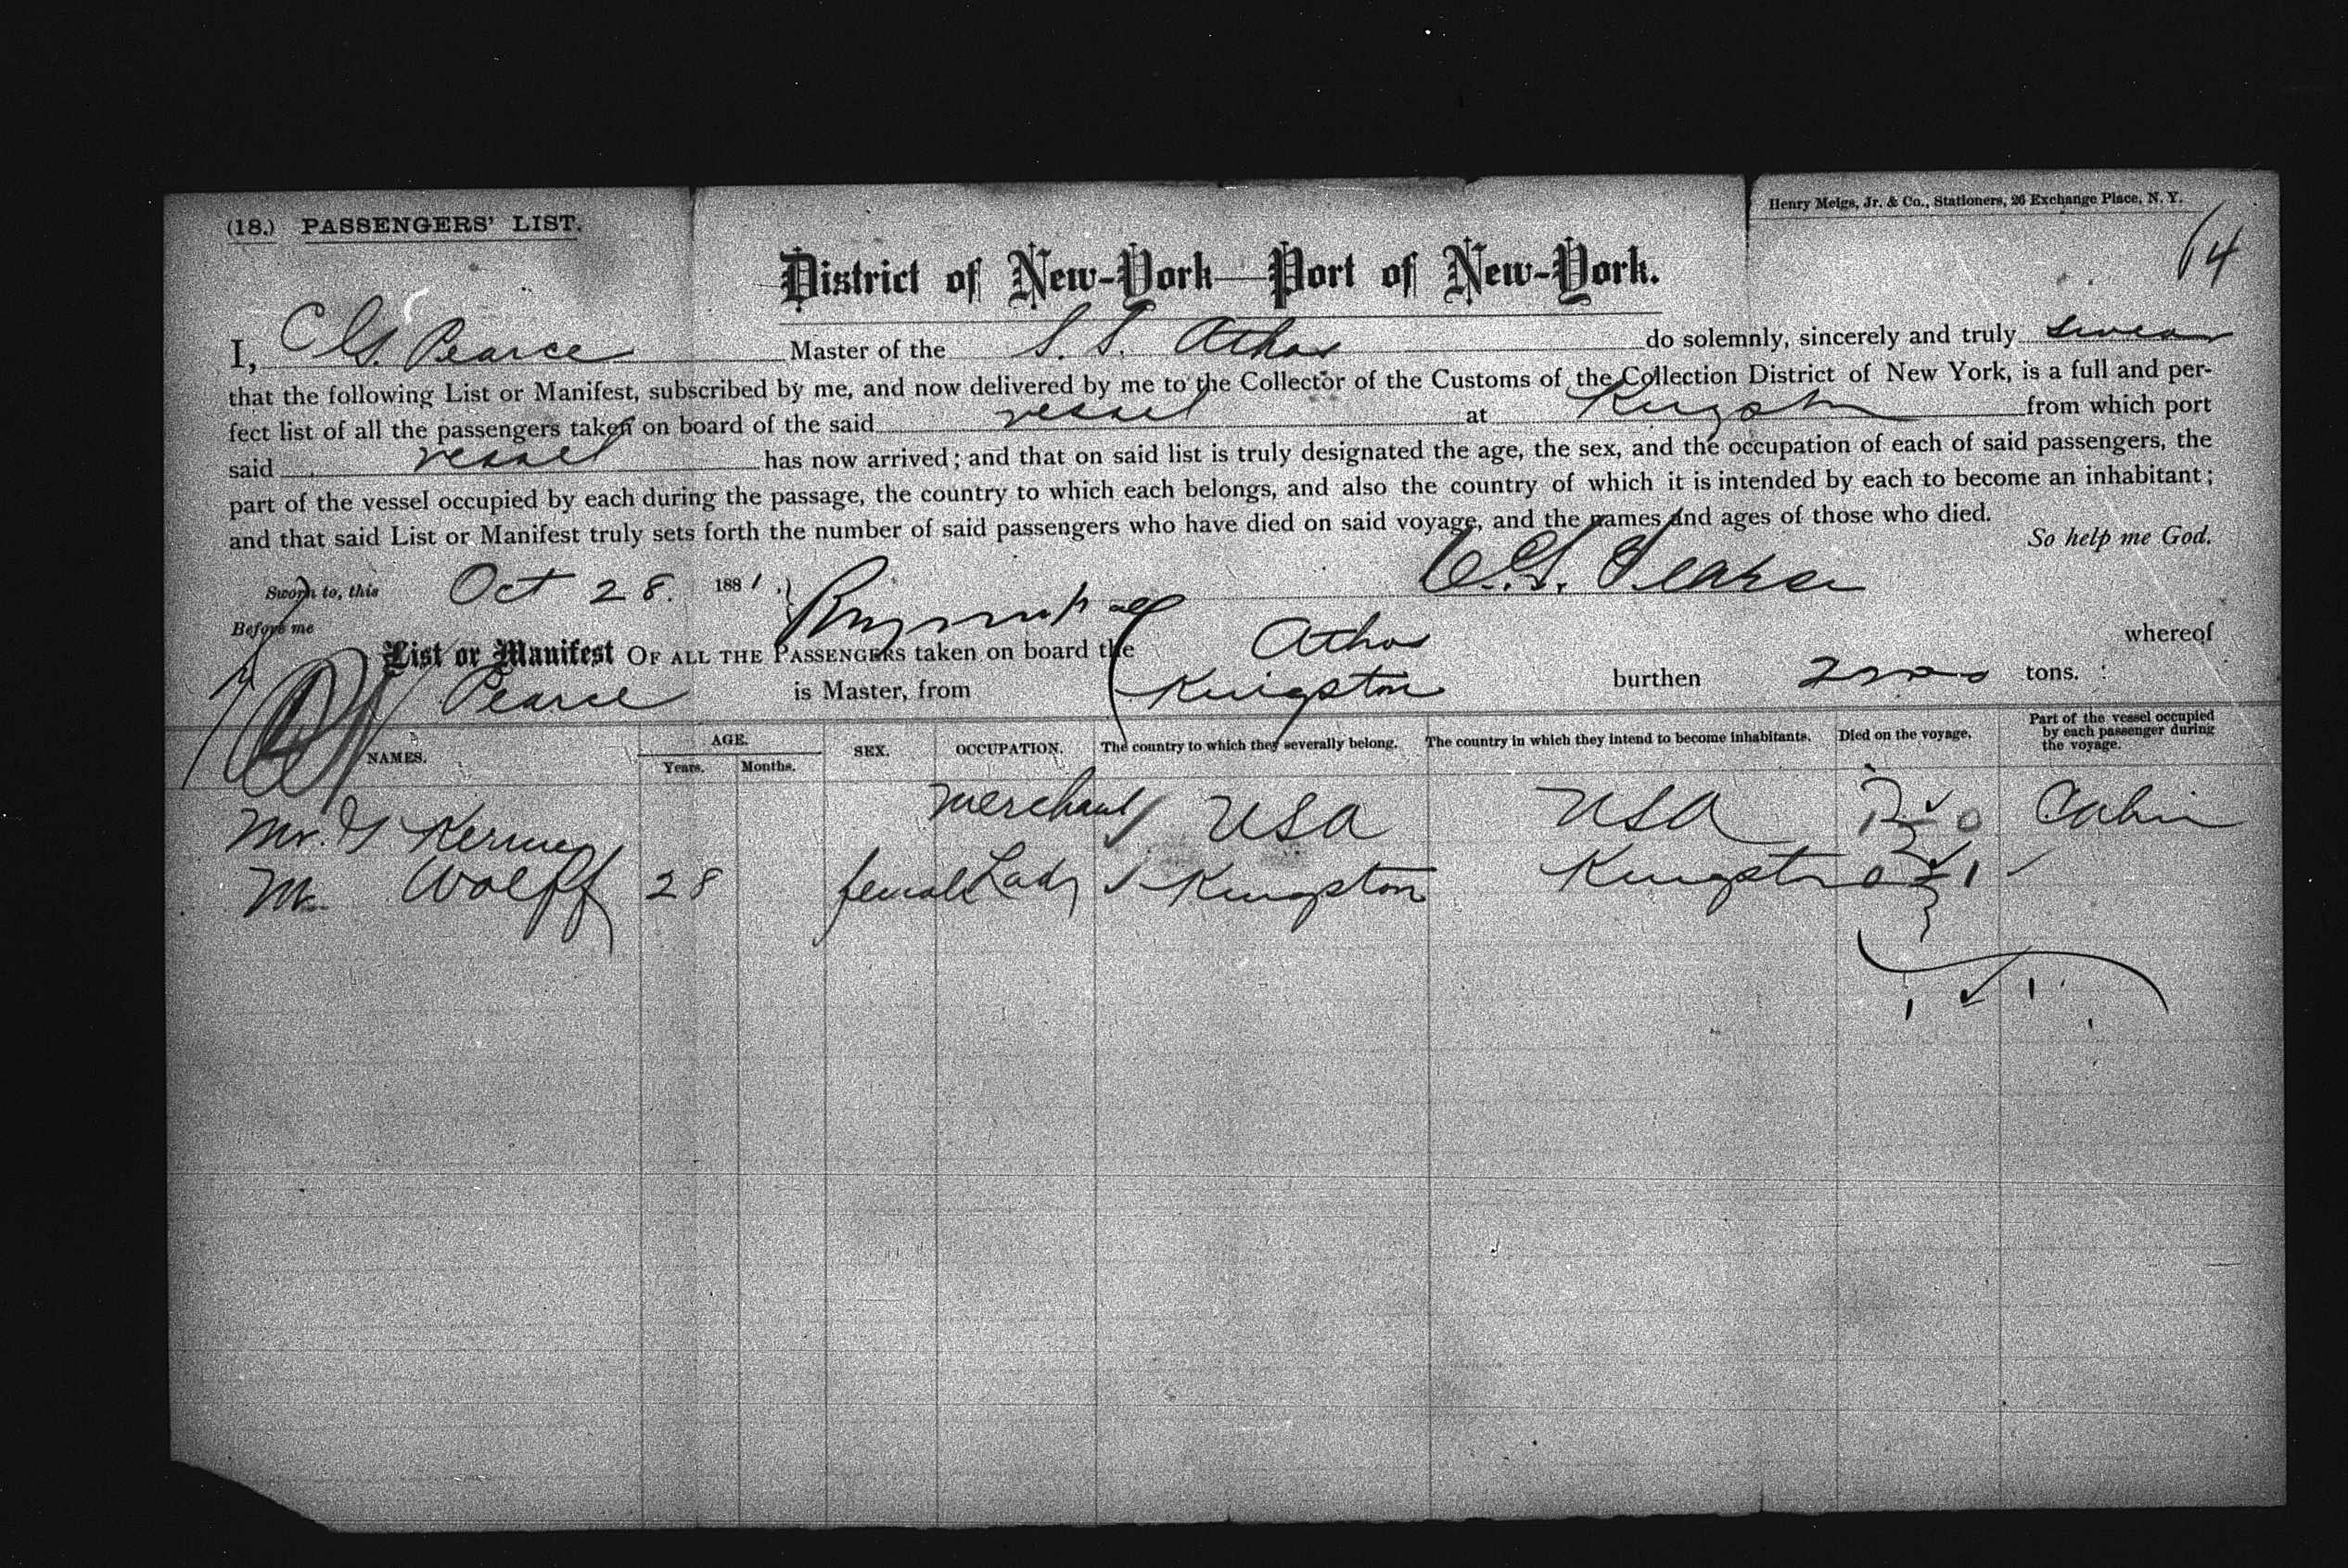 Henry Meigs, Jr. & Co., Stationers, 26 Exchange Place, N. Y.
(18.) PASSENGERS' LIST.
64
District of New-York—Port of New-York.
I, C G. Pearce Master of the S. S. Athos do solemnly, sincerely and truly swear
that the following List or Manifest, subscribed by me, and now delivered by me to the Collector of the Customs of the Collection District of New York, is a full and per-
fect list of all the passengers taken on board of the said vessel at Kingston from which port
said vessel has now arrived; and that on said list is truly designated the age, the sex, and the occupation of each of said passengers, the
part of the vessel occupied by each during the passage, the country to which each belongs, and also the country of which it is intended by each to become an inhabitant;
and that said List or Manifest truly sets forth the number of said passengers who have died on said voyage, and the names and ages of those who died.
So help me God.
Sworn to, this Oct 28. 1881. C. G. Pearce
Before me
List or Manifest OF ALL THE PASSENGERS taken on board the Athos whereof
Pearce is Master, from Kingston burthen tons.
NAMES. AGE. Years. Months. SEX. OCCUPATION. The country to which they severally belong. The country in which they intend to become inhabitants. Died on the voyage. Part of the vessel occupied by each passenger during the voyage.
Mr. G merchant USA USA Cabin
Wolff 28 female Lady Kingston Kingston